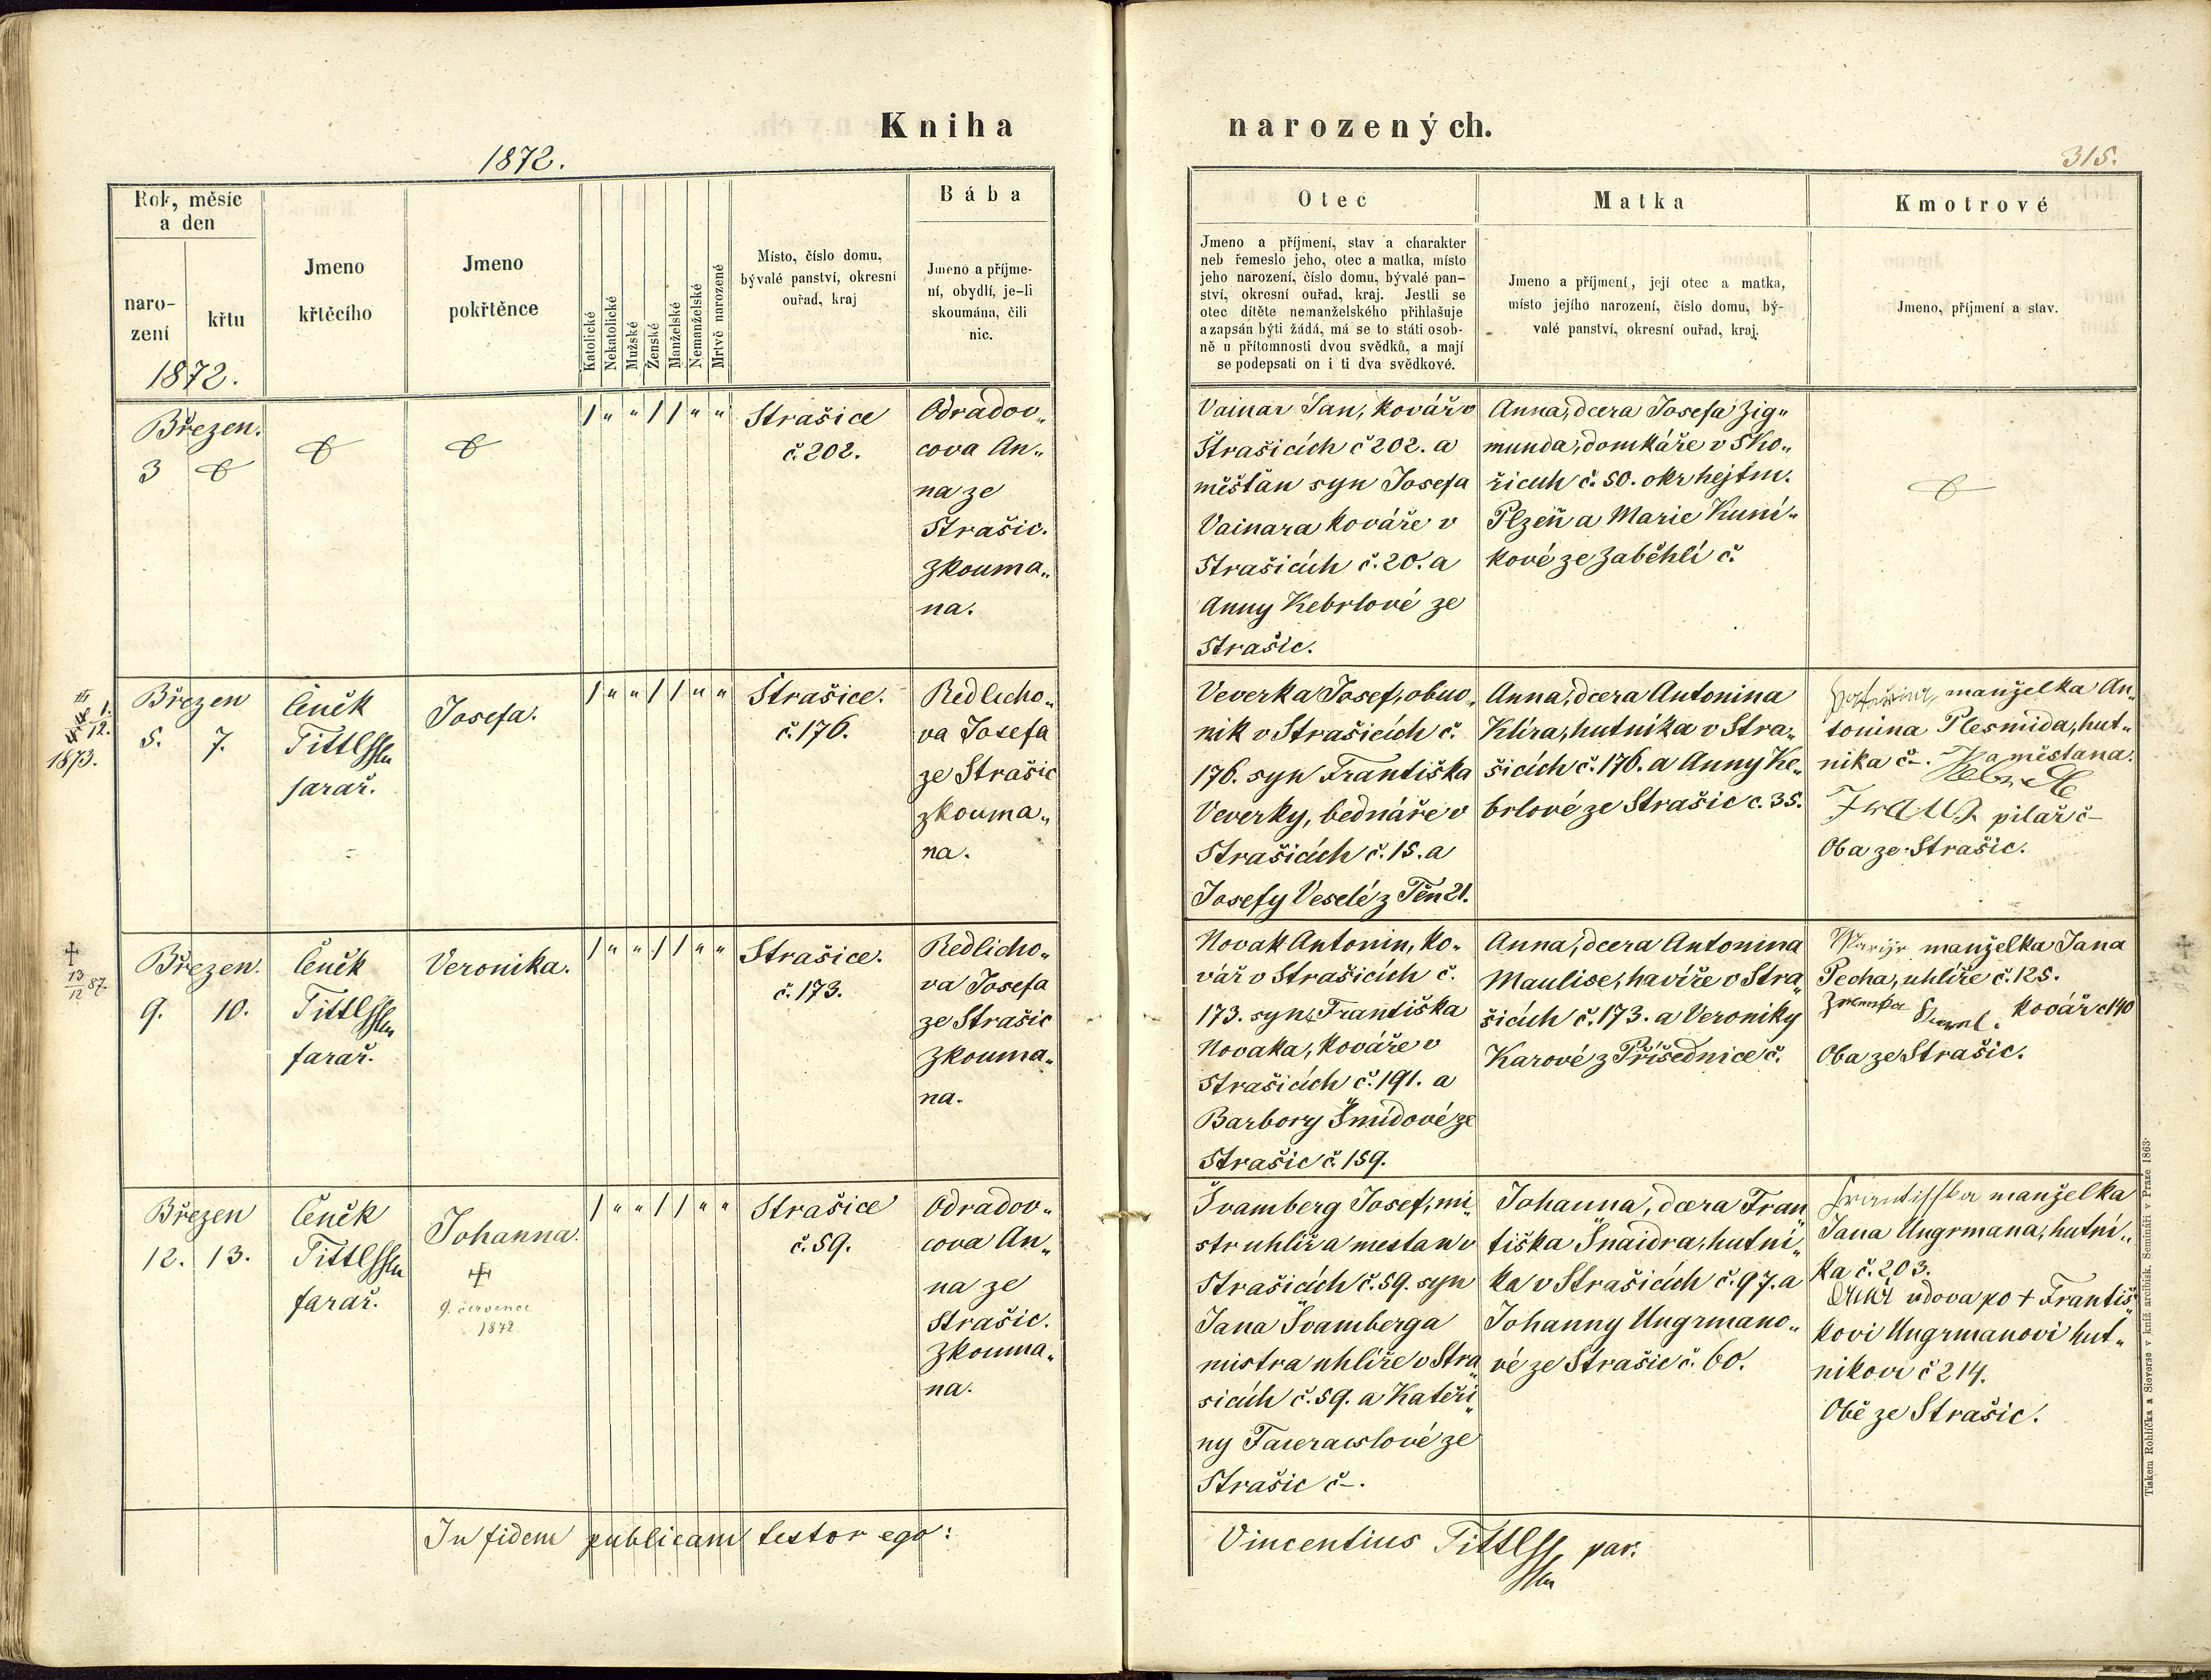 Kniha narozených.
1872.
315.
Rok, měsíc
a den
naro-
zení
křtu
1872.
Jmeno
křtěcího
Jmeno
pokřtěnce
Katolické
Nekatolické
Mužské
Ženské
Manželské
Nemanželské
Mrtvě narozené
Místo, číslo domu,
bývalé panství, okresní
ouřad, kraj
Bába
Jmeno a příjme-
ní, obydlí, je-li
skoumána, čili
nic.
Otec
Jmeno a příjmení, stav a charakter
neb řemeslo jeho, otec a matka, místo
jeho narození, číslo domu, bývalé pan-
ství, okresní ouřad, kraj. Jestli se
otec dítěte nemanželského přihlašuje
a zapsán býti žádá, má se to státi osob-
ně u přítomnosti dvou svědků, a mají
se podepsati on i ti dva svědkové.
Matka
Jmeno a příjmení, její otec a matka,
místo jejího narození, číslo domu, bý-
valé panství, okresní ouřad, kraj.
Kmotrové
Jmeno, příjmení a stav.
Březen.
3
/ " " / / " "
Strašice
č. 202.
Odradov„
cova An„
na ze
Strašic.
zkouma„
na.
Vainar Jan, kovář v
Strašicích č 202. a
měšťan syn Josefa
Vainara kováře v
Strašicích č. 20. a
Anny Kebrlové ze
Strašic.
Anna, dcera Josefa Zig„
munda, domkáře v Sko„
řicích č. 50. okr hejtm.
Plzeň a Marie Kuni„
kové ze Zaběhlí č.
1.
12.
1873.
Březen
5. 7.
Čeněk
Tittl
farař.
Josefa.
/ " " / / " "
Strašice.
č. 176.
Redlicho„
va Josefa
ze Strašic
zkouma„
na.
Veverka Josef, obuv„
nik v Strašicích č.
176. syn Františka
Veverky, bednáře v
Strašicích č. 15. a
Josefy Veselé z Těn 21.
Anna, dcera Antonina
Klíra, hutníka v Stra„
šicích č. 176. a Anny Ke„
brlové ze Strašic č. 35.
manželka An„
tonina Plesmida, hut„
nika č –. a měšťana.
pilař č –
Oba ze Strašic.
†
13
12 87.
Březen.
9. 10.
Čeněk
Tittl
farař.
Veronika.
/ " " / / " "
Strašice.
č. 173.
Redlicho„
va Josefa
ze Strašic
zkouma„
na.
Novak Antonin, ko„
vář v Strašicích č.
173. syn Františka
Novaka, kováře v
Strašicích č. 191. a
Barbory Šmídové ze
Strašic č. 159.
Anna, dcera Antonina
Maulise, havíře v Stra„
šicích č. 173. a Veroniky
Karové z Příšednice č.
Marije manželka Jana
Pecha, uhlíře č. 125.
kovář č 140
Oba ze Strašic.
Březen
12. 13.
Čeněk
Tittl
farař.
Johanna.
†
9. července
1872.
/ " " / / " "
Strašice
č. 59.
Odradov„
cova An„
na ze
Strašic.
Zkouma„
na.
Švamberg Josef, mi„
str uhlíř a mestan v
Strašicích č. 59. syn
Jana Švamberga
mistra uhlíře v Stra„
sicích č. 59. a Kateři„
ny ze
Strašic č –.
Johanna, dcera Fran„
tiška Šnaidra, hutní„
ka v Strašicích č. 97. a
Johanny Ungrmano„
vé ze Strašic č. 60.
Frantisska manželka
Jana Ungrmana, hutní„
ka č. 203.
vdova po † Františ„
kovi Ungrmanovi hut„
nikovi č 214.
Obě ze Strašic.
In fidem publicam testor ego:
Vincentius Tittl par.
Tiskem Rohlíčka a Sieverse v kníž. arcibisk. Semináři v Praze 1863.